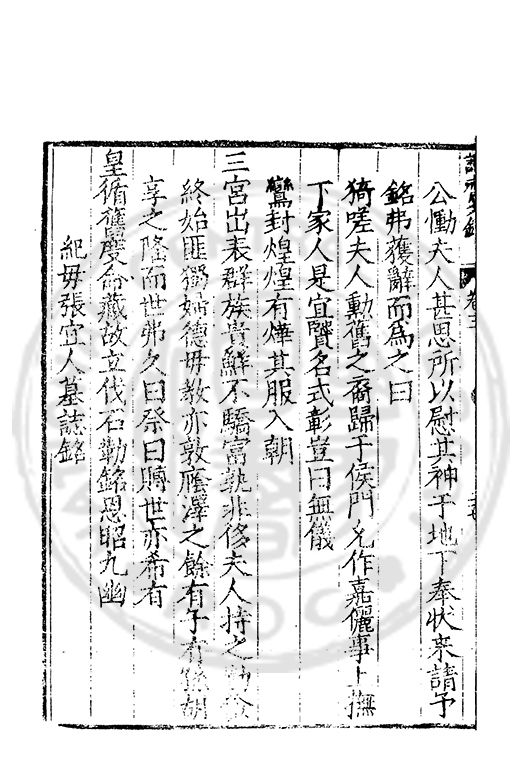 公慟夫人甚思所以慰其神于地下奉狀來請予
銘弗獲辭而為之曰
猗嗟夫人勳舊之裔歸于侯門允作嘉儷事上撫
下家人是宜賢名式彰豈曰無儀
鸞封煌煌有燁其服入朝
三宮出表群族貴鮮不驕富孰非侈夫人持之
終始匪獨婦德毋教亦敦廕澤之餘有子有孫胡
享之隆而世弗久曰祭曰賻世亦希有
皇循舊慶命藏故立伐石勒銘恩昭九幽
紀毋張宜人墓誌銘